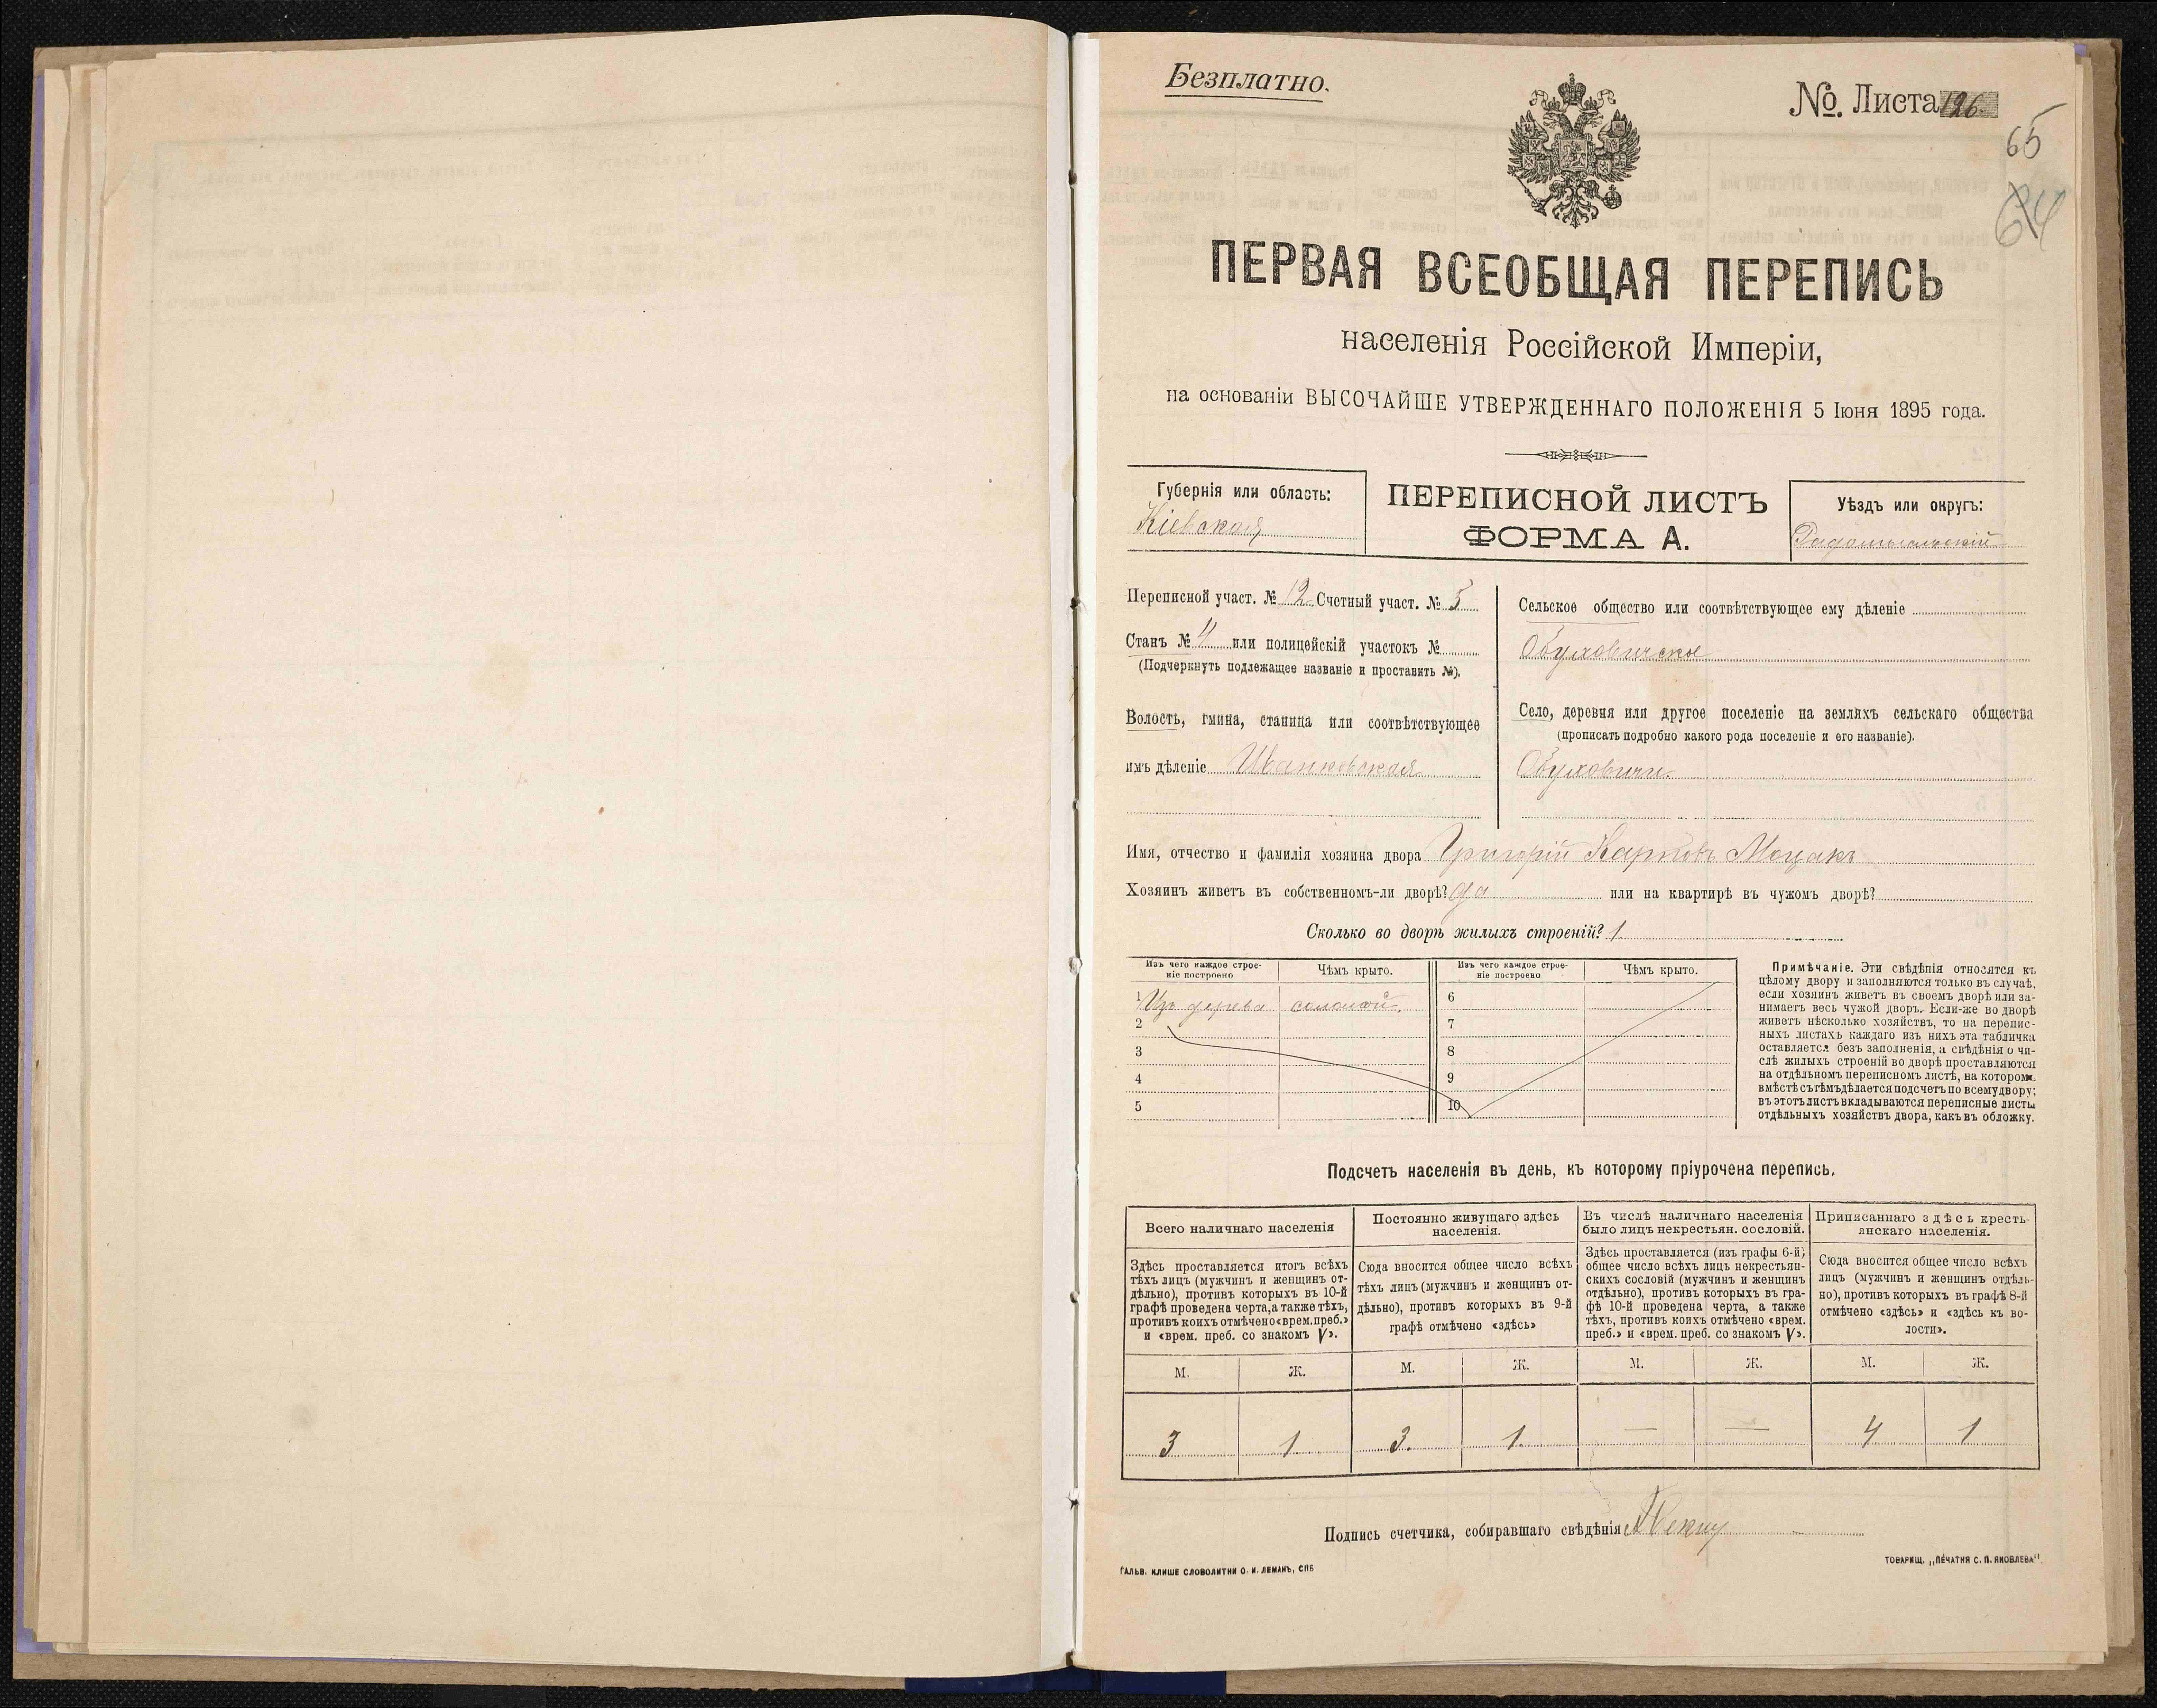 Безплатно.
№. Листа 126.
65
64
ПЕРВАЯ ВСЕОБЩАЯ ПЕРЕПИСЬ
населенія Россійской Имперіи,
на основаніи ВЫСОЧАЙШЕ УТВЕРЖДЕННАГО ПОЛОЖЕНІЯ 5 Іюня 1895 года.
Губернія или область:
Кіевская
ПЕРЕПИСНОЙ ЛИСТЪ
ФОРМА А.
Уѣздъ или округъ:
Радомысльскій
Переписной участ. № 12 Счетный участ. № 5
Станъ № 4 или полицейскій участокъ №
(Подчеркнуть подлежащее названіе и проставить №).
Волость, гмина, станица или соотвѣтствующее
имъ дѣленіе Иванковская
Сельское общество или соотвѣтствующее ему дѣленіе
Обуховичское
Село, деревня или другое поселеніе на земляхъ сельскаго общества
(прописать подробно какого рода поселеніе и его названіе).
Обуховичи
Имя, отчество и фамилія хозяина двора Григорій Карповъ Моцакъ
Хозяинъ живетъ въ собственномъ-ли дворѣ? да или на квартирѣ въ чужомъ дворѣ?
Сколько во дворѣ жилыхъ строеній? 1
Изъ чего каждое строе-
ніе построено
Чѣмъ крыто.
Изъ чего каждое строе-
ніе построено
Чѣмъ крыто.
1 Изъ дерева соломой. 6
2 7
3 8
4 9
5 10
Примѣчаніе. Эти свѣдѣнія относятся къ
цѣлому двору и заполняются только въ случаѣ,
если хозяинъ живетъ въ своемъ дворѣ или за-
нимаетъ весь чужой дворъ. Если-же во дворѣ
живетъ нѣсколько хозяйствъ, то на перепис-
ныхъ листахъ каждаго изъ нихъ эта табличка
оставляется безъ заполненія, а свѣдѣнія о чи-
слѣ жилыхъ строеній во дворѣ проставляются
на отдѣльномъ переписномъ листѣ, на которомъ
вмѣстѣ съ тѣмъ дѣлается подсчетъ по всему двору;
въ этотъ листъ вкладываются переписные листы
отдѣльныхъ хозяйствъ двора, какъ въ обложку.
Подсчетъ населенія въ день, къ которому пріурочена перепись.
Всего наличнаго населенія
Здѣсь проставляется итогъ всѣхъ
тѣхъ лицъ (мужчинъ и женщинъ от-
дѣльно), противъ которыхъ въ 10-й
графѣ проведена черта, а также тѣхъ,
противъ коихъ отмѣчено «врем. преб.»
и «врем. преб. со знакомъ V».
Постоянно живущаго здѣсь
населенія.
Сюда вносится общее число всѣхъ
тѣхъ лицъ (мужчинъ и женщинъ от-
дѣльно), противъ которыхъ въ 9-й
графѣ отмѣчено «здѣсь»
Въ числѣ наличнаго населенія
было лицъ некрестьян. сословій.
Здѣсь проставляется (изъ графы 6-й)
общее число всѣхъ лицъ некрестьян-
скихъ сословій (мужчинъ и женщинъ
отдѣльно), противъ которыхъ въ гра-
фѣ 10-й проведена черта, а также
тѣхъ, противъ коихъ отмѣчено «врем.
преб.» и «врем. преб. со знакомъ V».
Приписаннаго здѣсь кресть-
янскаго населенія.
Сюда вносится общее число всѣхъ
лицъ (мужчинъ и женщинъ отдѣль-
но), противъ которыхъ въ графѣ 8-й
отмѣчено «здѣсь» и «здѣсь къ во-
лости».
М. Ж. М. Ж. М. Ж. М. Ж.
3 1 3. 1. — — 4 1
Подпись счетчика, собиравшаго свѣдѣнія
ГАЛЬВ. КЛИШЕ СЛОВОЛИТНИ О. И. ЛЕМАНЪ, СПБ
ТОВАРИЩ. „ПЕЧАТНЯ С. П. ЯКОВЛЕВА".